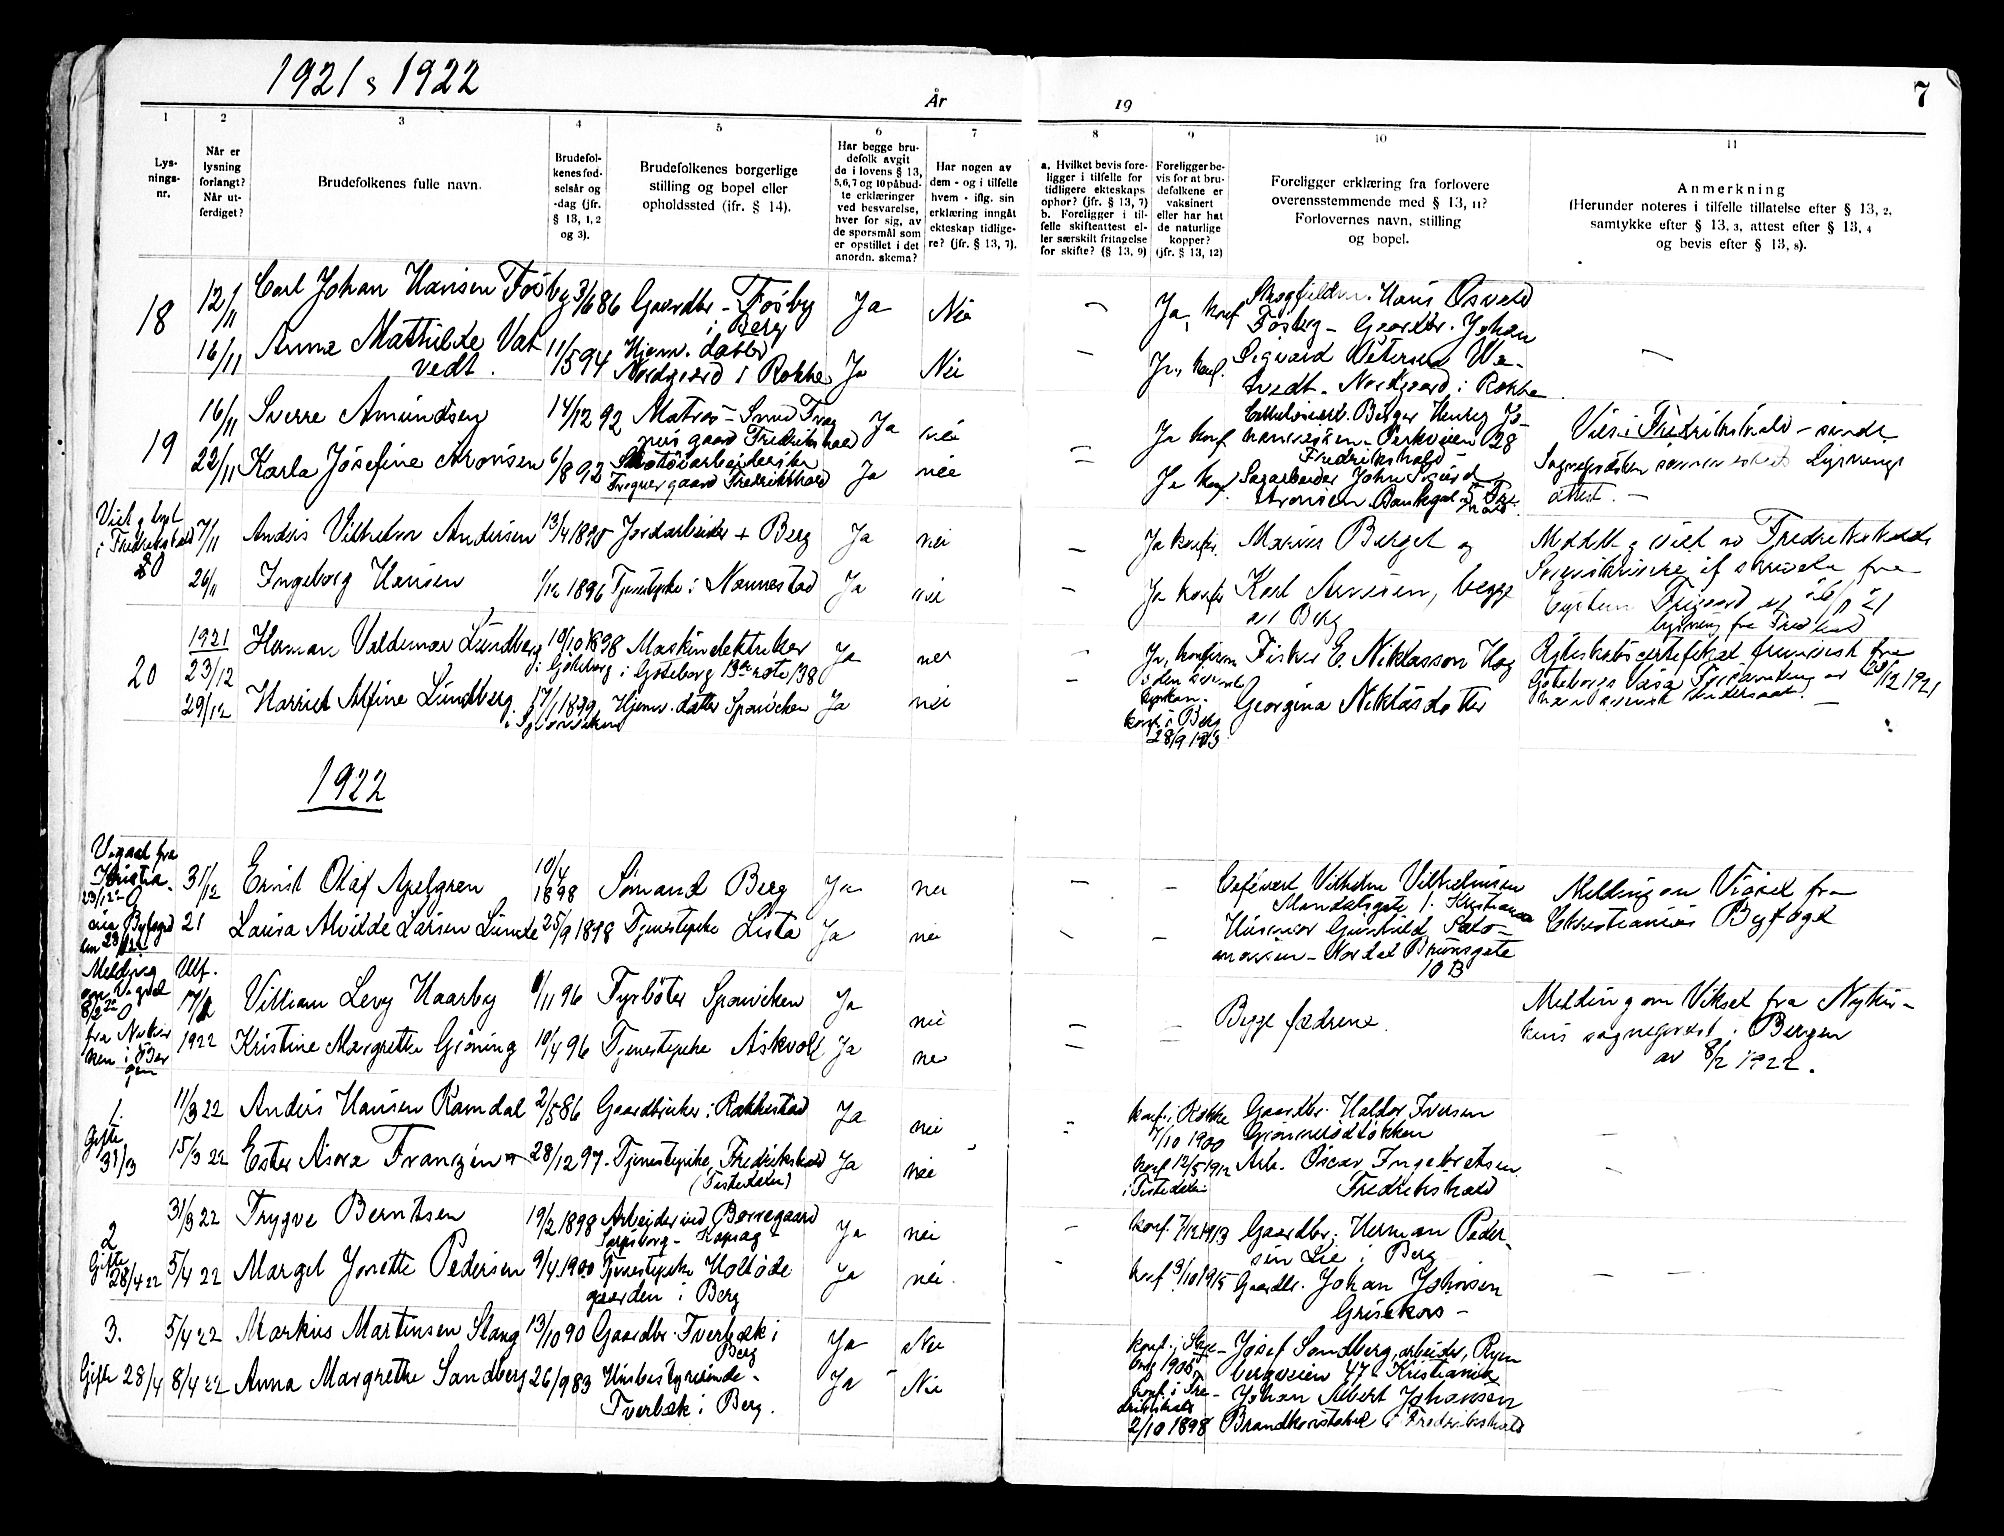 1921 s 1922
År
19
7
1
2
3
4
5
6
7
8
9
10
11
Lys-
nings-
nr.
Når er
lysning
forlangt?
Når ut-
ferdiget?
Brudefolkenes fulle navn.
Brudefol-
kenes fød-
selsår og
-dag (jfr.
§ 13, 1, 2
og 3).
Brudefolkenes borgerlige
stilling og bopel eller
opholdssted (ifr. § 14).
Har begge bru-
defolk avgit
de i lovens § 13,
5,6,7 og 10 påbud-
te erklæringer
ved besvarelse,
hver for sig, av
de spørsmål som
er opstillet i det
anordn. skema?
Har nogen av
dem - og i tilfelle
hvem - iflg. sin
erklæring inngått
ekteskap tidlige-
re? (jfr. § 13, 7).
a. Hvilket bevis fore-
ligger i tilfelle for
tidligere ekteskaps
ophør? (jfr. § 13, 7)
b. Foreligger i til-
felle skifteattest el-
ler særskilt fritagelse
for skifte? (§ 13, 9)
Foreligger be-
vis for at bru-
defolkene er
vaksinert
eller har hat
de naturlige
kopper?
(jfr. § 13, 12)
Foreligger erklæring fra forlovere
overensstemmende med § 13, 11?
Forlovernes navn, stilling
og bopel.
Anmerkning
(Herunder noteres i tilfelle tillatelse efter § 13, 2,
samtykke efter § 13, 3, attest efter § 13, 4
og bevis efter § 13, 8).
18
12/11
Carl Johan Hansen Fosby 3/6 86 Gaardbr - Fosby
i Berg
Ja Nei
Ja, konf
Hans Osvald
Fosberg - Gaardbr. Johan
16/11 Anna Mathilde Vat-
vedt.
11/5 94 Hjem. datter
Nordgaard i Rokke
Ja Nei
Ja, konf.
Sigvard Petersen Va-
tvedt - Nordgaard i Rokke
19
16/11 Sverre Amundsen 14/12 92 Matros -
gaard Fredrikshald
Ja nei
Ja konf
Berger Henry Jo-
28
Fredrikshald -
Viet i Fredrikshald -
22/11 Karla Josefine Aronsen 6/8 92
gaard Fredrikshald
Ja nei
Ja konf.
Sagarbeider John Sigurd
Aronsen
attest. -
Viet g lyst
i Fredrikshald
20
7/11 Anders Vilhelm Andersen 13/4 1890 Jordarbeider + Berg Ja nei
Ja konfr. Marius Berget og
Meddelt g viet av Fredrikshalds
Sorenskriver if skrivelse fra
26/11 Ingeborg Hansen 1/12 1896 Tjenestepike i Nannestad Ja nei
Ja konfr Karl Arnesen, begge
av Berg
lysning fra Fredhald
20
1921
23/12
Herman Valdemar Lundberg 10/10 1898 Maskinelektriker
i Göteborg i Göteborg 13de rote 138
Ja nei
Ja, konfirm
i den svenske
kyrkan.
Fisker E. Niklasson Hog
Göteborgs Vasa Församling av 20/12 1921
29/12 Harriet Alfine Lundberg. 17/1 1899 Hjemv. datter Sponviken
i Sponviken
Ja nei
konf. i Berg
28/9 1913
Georgina Niklasdotter
1922
Vigsel fra
Kristia.
23/12 20
31/12
21
Ernst Olaf Apelgren 10/4
1898 Sømand Berg Ja nei
Cafévert Vilhelm Vilhelmsen
Mandalsgate 1. Kristiania
Melding om Vigsel fra
Christianias Byfogd
Laura Alvilde Larsen Lunde 25/9 1898 Tjenestepike Lista Ja nei
Gunhild Salo-
monsen - Nordal Brunsgate
10 B
Melding
om Vigsel
8/2 22
fra Nykir
ken i Ber
gen
Utf.
17/2
1922
Villiam Levy Haarby 1/11 96 Fyrbøter Sponviken Ja nei
Begge fædrene.
Melding om Viksel fra Nykir-
kens sogneprest i Bergen
av 8/2 1922.
Kristine Margrethe Grøning 10/4 96 Tjenestepike Askvoll Ja nei
1.
Gifte
31/3
11/3 22 Anders Hansen Ramdal 2/5 86 Gaardbruker i Rakkestad Ja nei
konf. i Rokke
7/10 1900
Gaardbr. Haldor Iversen
15/3 22 Ester Asora Franzén 28/12 97 Tjenestepike, Fredrikshald
(Tistedalen)
Ja nei
konf 12/5 1912
i Tistedalen
Arb. Oscar Ingebretsen
Fredrikshald
2
Gifte
28/4 22
31/3 22 Trygve Berntsen 19/2 1898 Arbeider ved Borregaard
Sarpsborg -
Ja nei
konf. 7/12 1913 Gaardbr. Herman Peder-
sen Lie i Berg
5/4 22 Margit Jonette Pedersen 9/4 1900 Tjenestepike Holtøde
gaarden i Berg
Ja nei.
konf 3/10 1915 Gaardbr. Johan Johnsen
Grisekors -
3.
Gifte 28/4
5/4 22 Markus Martinsen Stang 13/10 90 Gaardbr. Tverbæk i
Berg
Ja Nei
Josef Sandberg, arbeider, Ryen
bergveien 47 Kristiania
8/4 22 Anna Margrethe Sandberg 26/9 83 Husbestyrerinde -
Tverbæk i Berg.
Ja Nei
konf. i Fre-
drikshald
2/10 1898
Johan Albert Johansen
Brandkonstabel i Fredrikshald